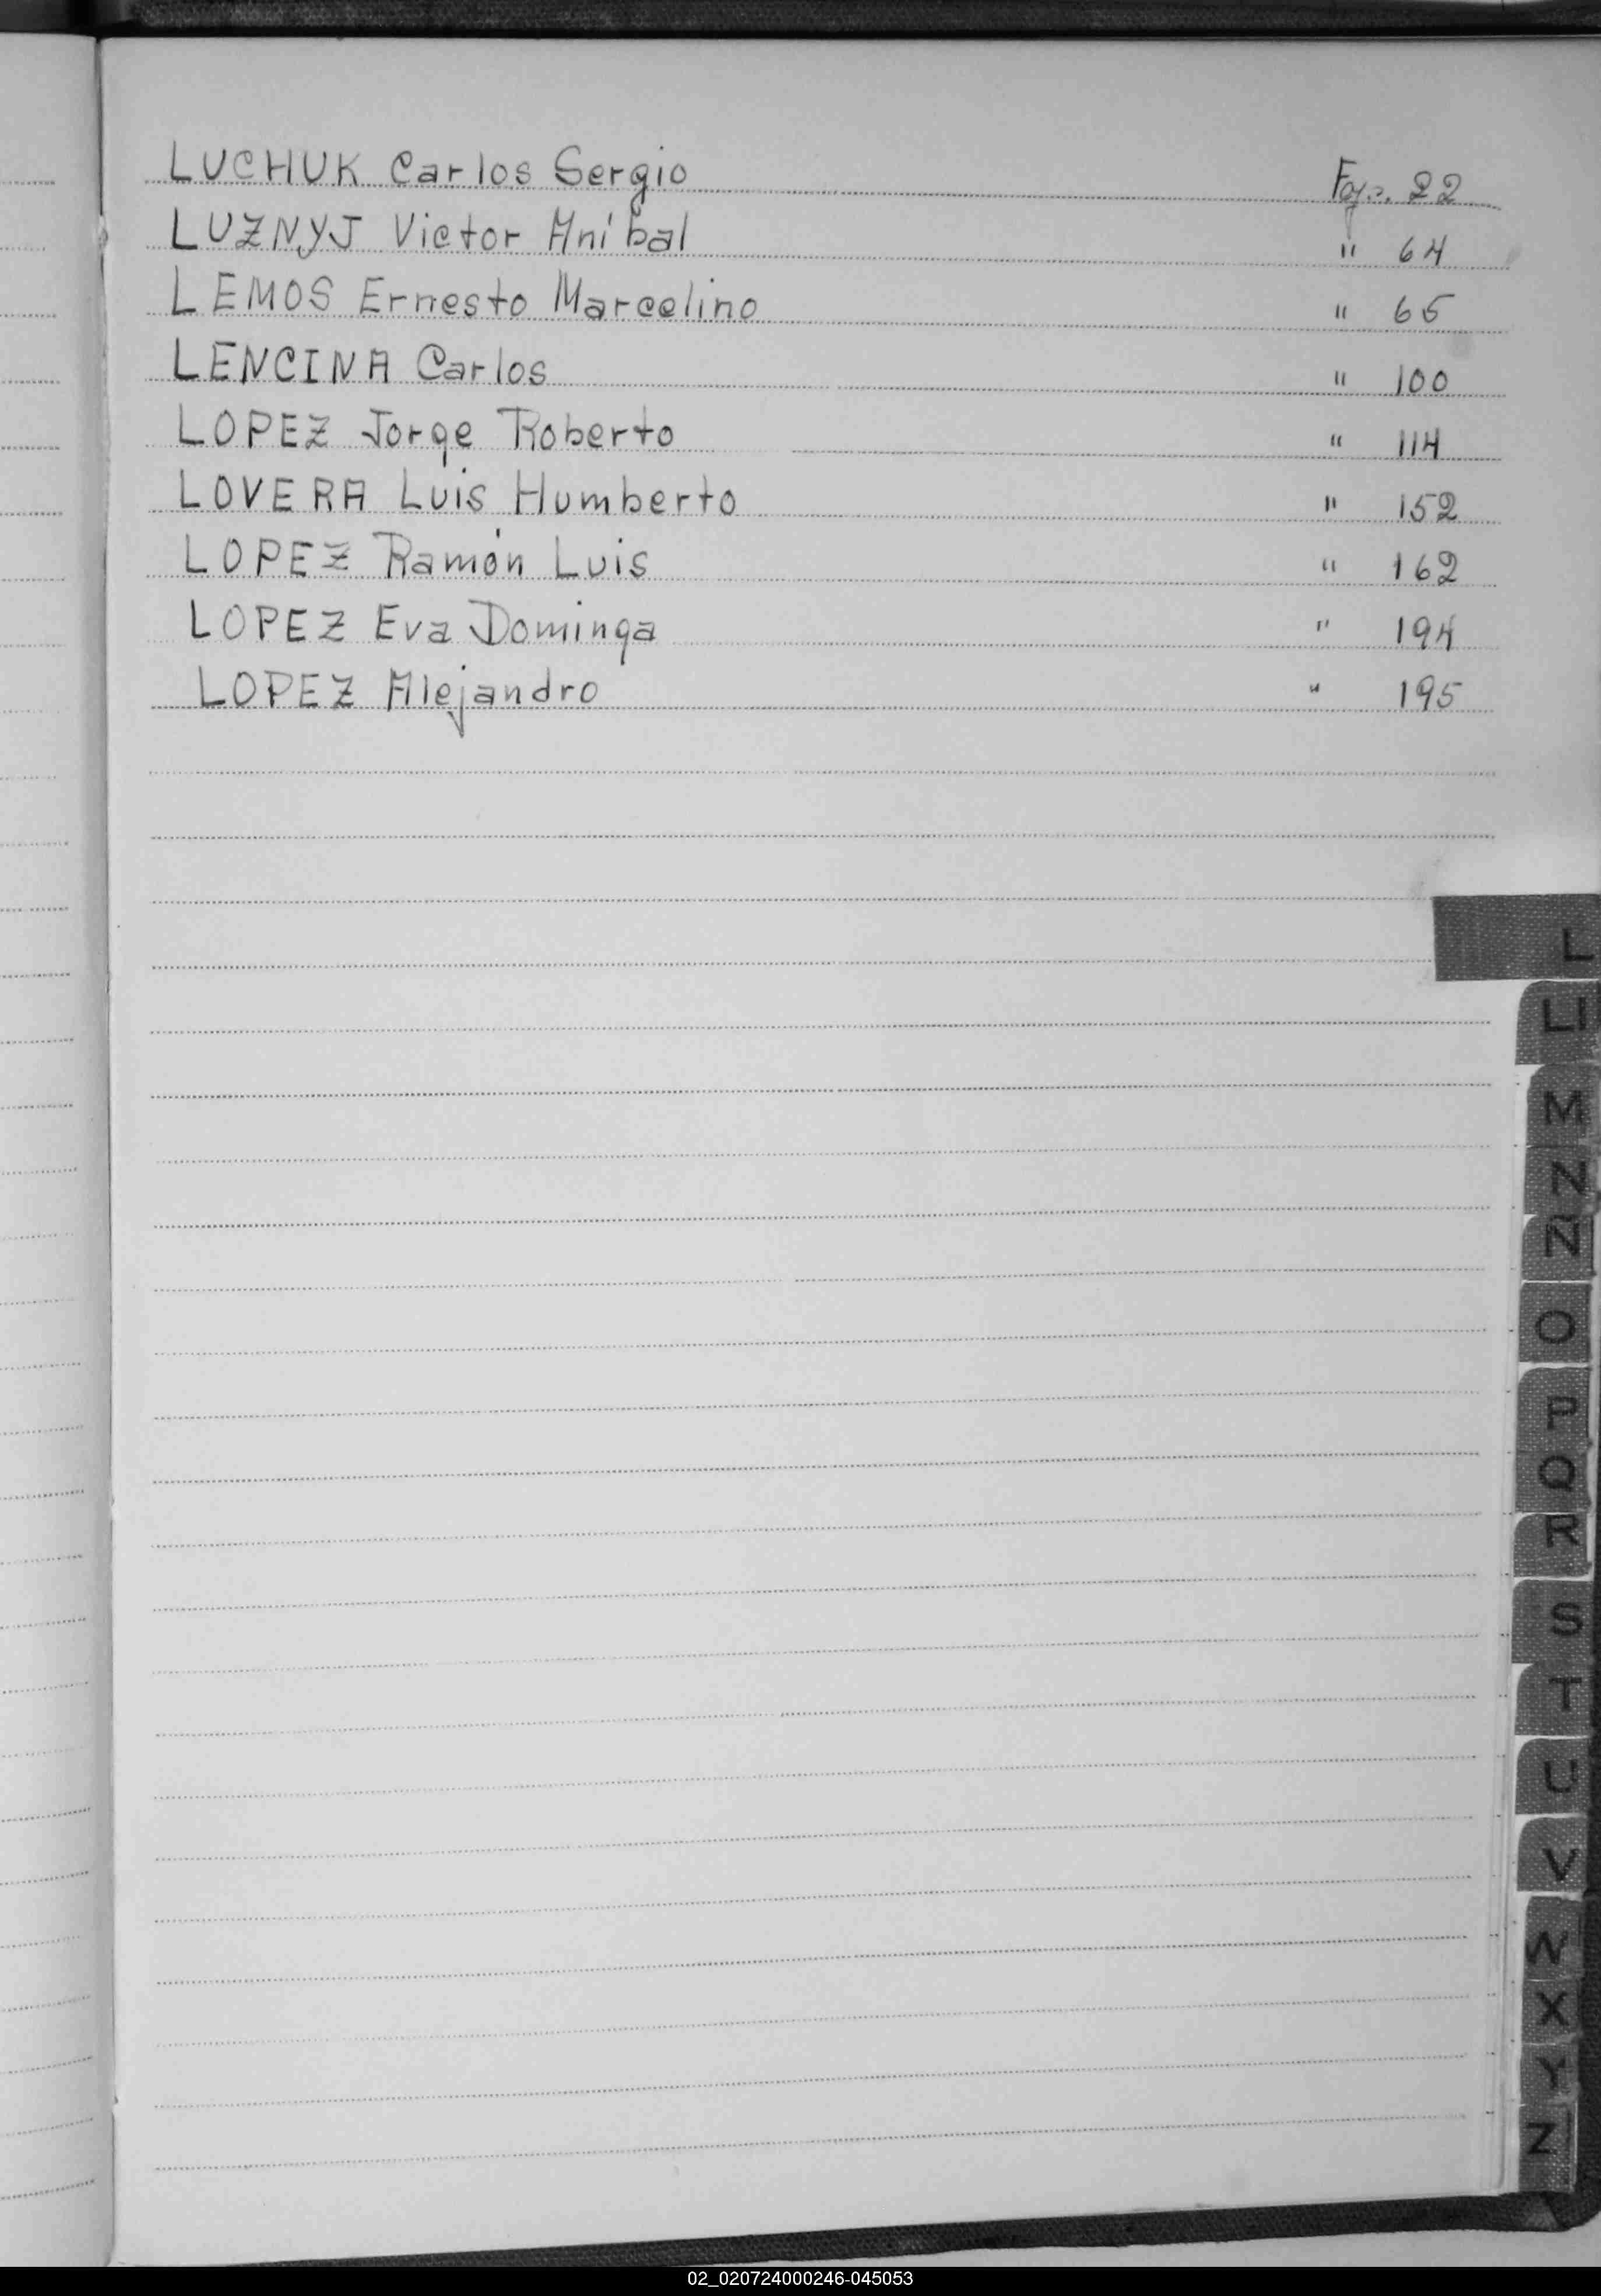 LUCHUK Carlos Sergio Fojo. 22
LUZNYJ Victor Anibal " 64
LEMOS Ernesto Marcelino " 65
LENCINA Carlos " 100
LOPEZ Jorge Roberto " 114
LOVERA Luis Humberto " 152
LOPEZ Ramón Luis " 162
LOPEZ Eva Dominga " 194
LOPEZ Alejandro " 195
L
Ll
M
N
Ñ
O
P
Q
R
S
T
U
V
W
X
Y
Z
02_020724000246-045053